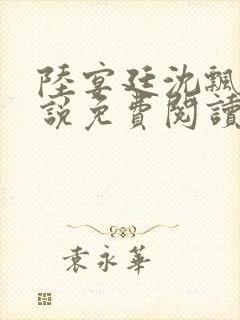 陸宴廷沈飄
說免費閱讀
袁永華